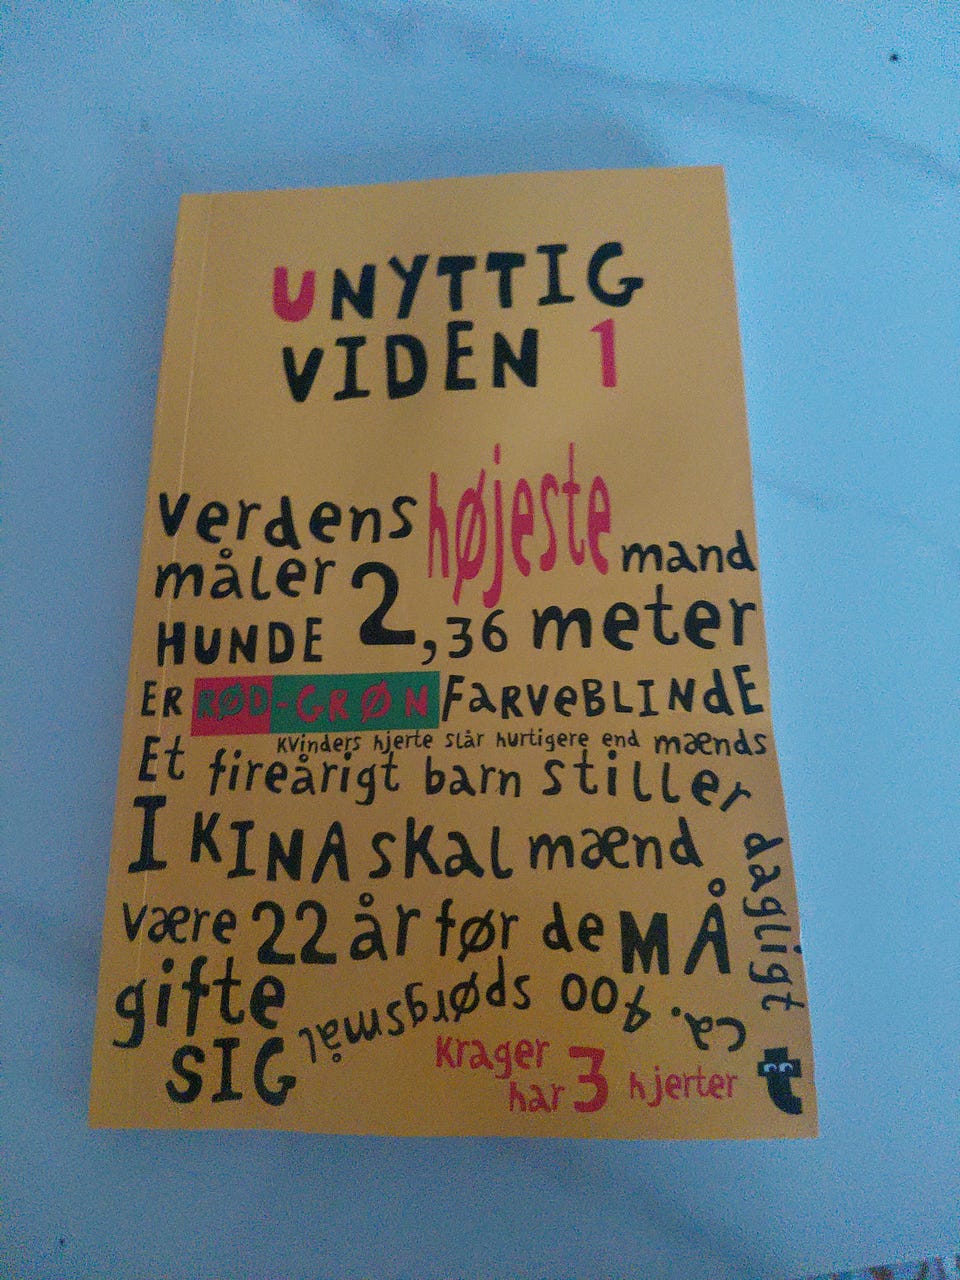 UNYTTIG
VIDEN 1
verdens højeste mand
måler 2,36 meter
HUNDE
ER RØD-GRØN FARVEBLINDE
Kvinders hjerte slår hurtigere end mænds
Et fireårigt barn stiller
dagligt
ca. 400 spørgsmål
I KINA skal mænd
være 22 år før de MÅ
gifte
SIG
Krager
har 3 hjerter
t